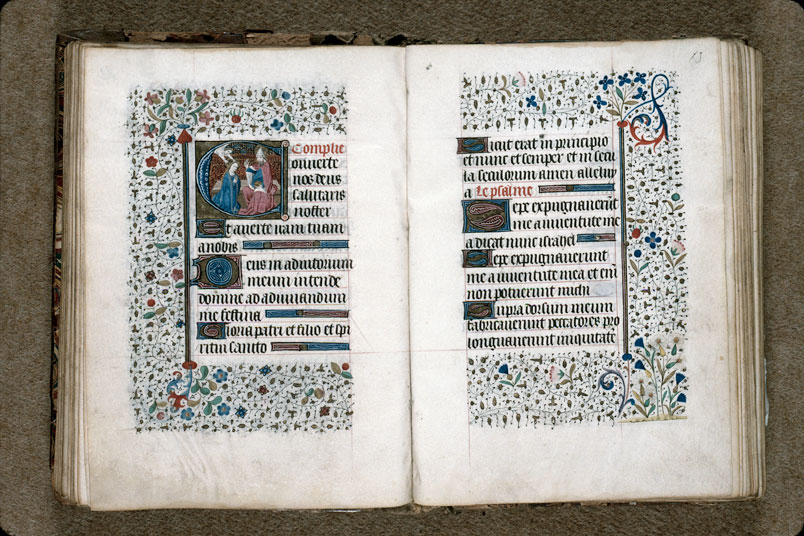 Complie
onuerte
nos deus
salutaris
noster
Et auerte iram tuam
a nobis
Deus in adiutorium
meum intende
domine ad adiuuandum
me festina
Gloria patri et filio et spi
ritui sancto
13
Sicut erat in principio
et nunc et semper et in secu
la seculorum amen alleluy
a Le psalme
Sepe expugnauerūt
me a iuuentute me
a dicat nunc israhel
Sepe expugnauerunt
me a iuuentute mea et eni
non potuerunt michi
Supra dorsum meum
fabricauerunt peccatores pro
longauerunt iniquitatē